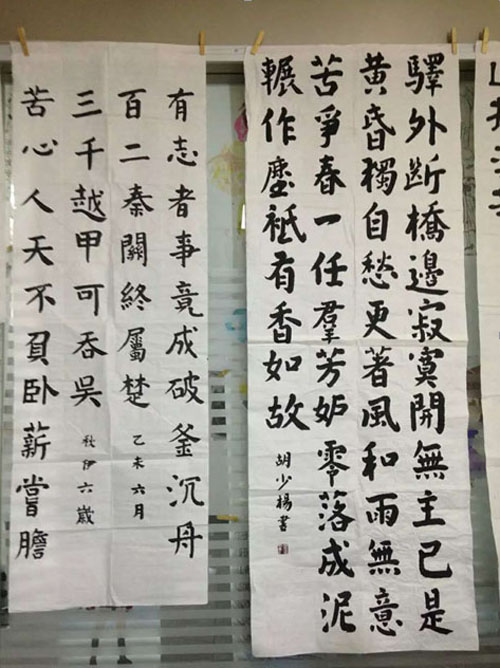 驛外斷橋邊寂寞開無主已是
黃昏獨自愁更著風和雨無意
苦爭春一任羣芳妒零落成泥
輾作塵祗有香如故
胡少楊書
有志者事竟成破釜沉舟
百二秦關終屬楚
乙未六月
苦心人天不負卧薪嘗膽
三千越甲可吞吳
秋伊六歲